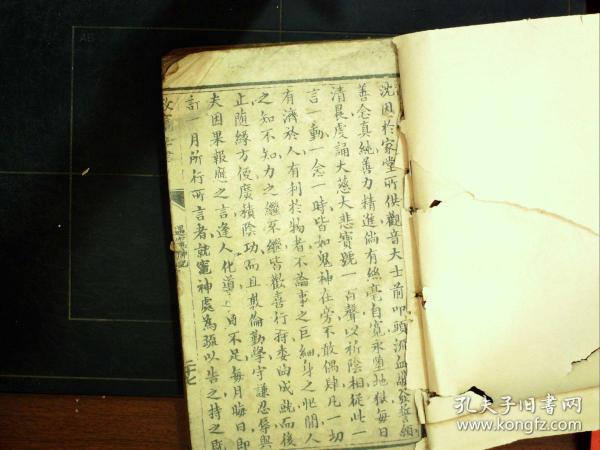 沈因於家堂所供觀音大士前叩頭流血誓發善願
善念真純善力精進倘有絲毫自寬永墮地獄每日
清晨虔誦大慈大悲寶號一百聲以祈陰相從此一
言一動一念一時皆如鬼神在旁不敢偶肆凡一切
有濟於人有利於物者不論事之巨細身之忙閒人
之知不知力之繼不繼皆歡喜行持委曲成就而後
止隨緣方便廣積陰功而且敦倫勤學守謙忍辱與
夫因果報應之言逢人化導日不足每月晦日即
計一月所行所言者就竈神處為疏以告之持之既
遇竈神記
二十七
孔夫子旧书网
www.kongfz.com